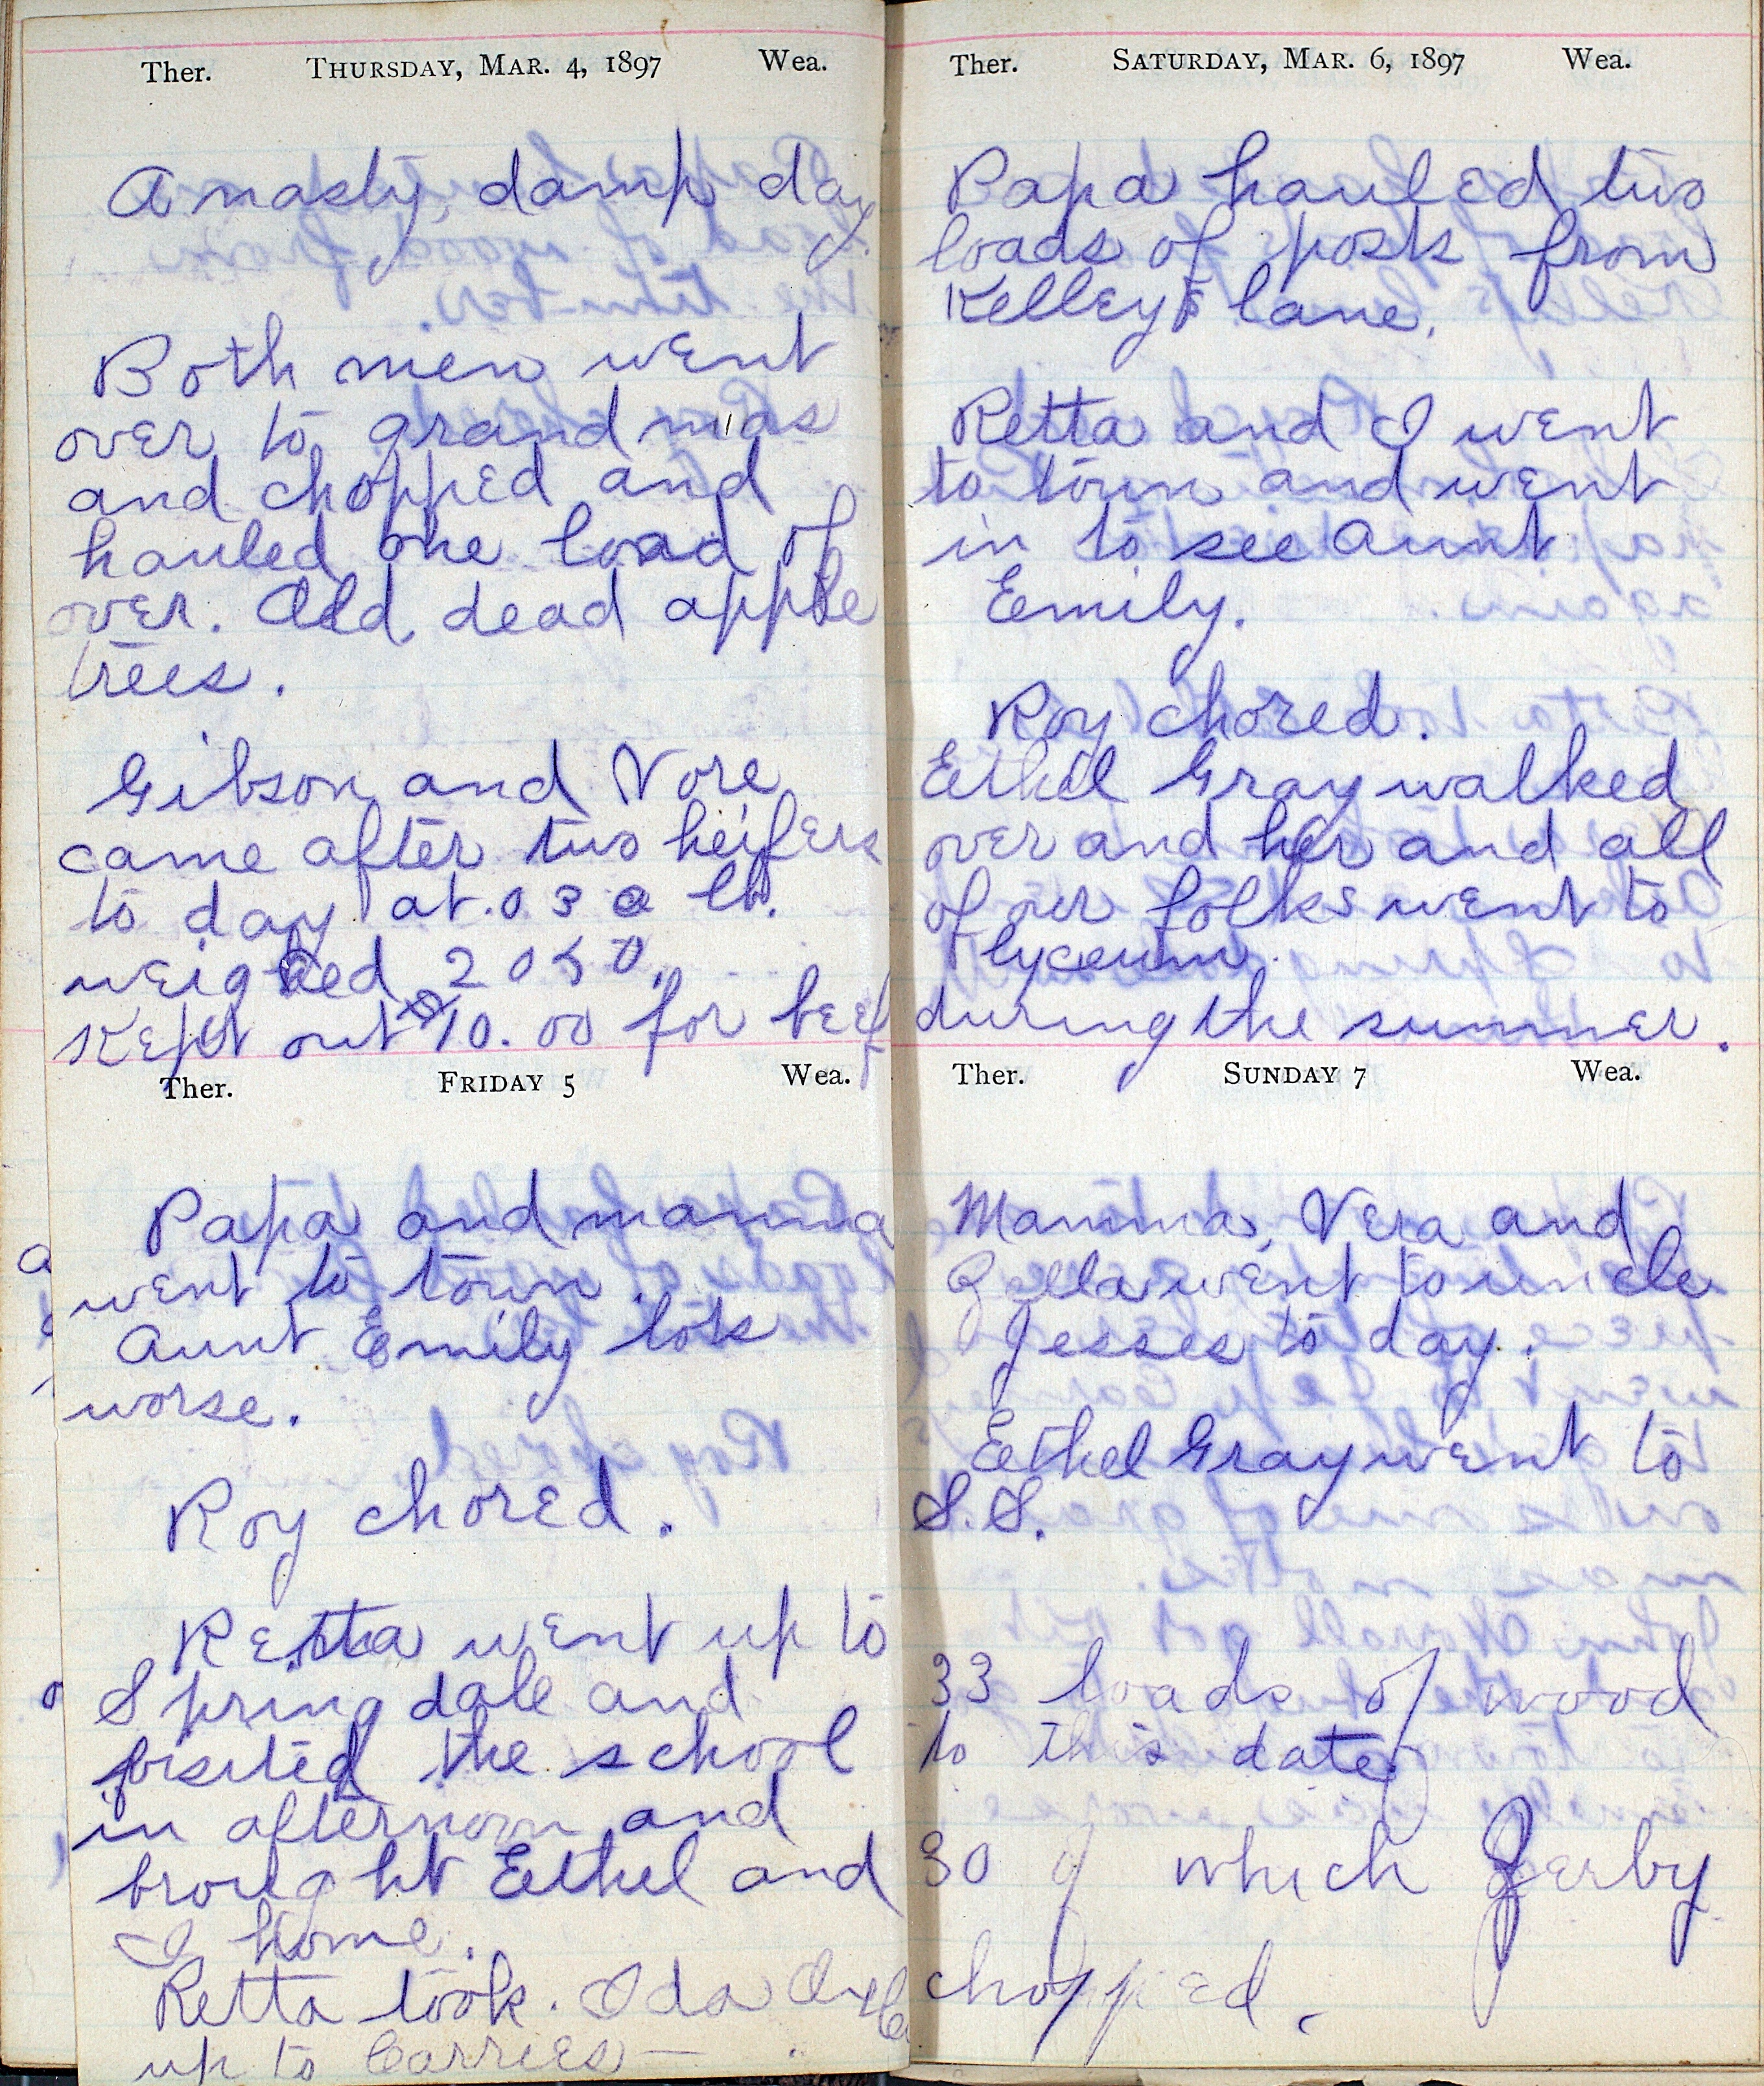 Ther. THURSDAY, MAR. 4, 1897 Wea.
A nasty, damp day.
Both men went
over to grandmas
and chopped and
hauled one load of
over. Old, dead apple
trees.
Gibson and Vore
came after two heifers
to day at .03 a lb.
weighed 2050.
Kept out $10.00 for beef
Ther. FRIDAY 5 Wea.
Papa and mamma
went to town.
Aunt Emily lots
worse.
Roy chored.
Retta went up to
Springdale and
visited the school
in afternoon and
brought Eethel and
I home.
Retta took Ida
up to Carries —
Ther. SATURDAY, MAR. 6, 1897 Wea.
Papa hauled two
loads of posts from
Kelleys lane.
Retta and I went
to town and went
in to see Aunt
Eemily.
Roy chored.
Eethel Gray walked
over and her and all
of our folks went to
lyceum.
during the summer.
Ther. SUNDAY 7 Wea.
Mamma, Vera and
Zella went to uncle
Jesses to day.
Eethel Gray went to
S.S.
33 loads of wood
to this date
30 of which Zerby
chopped.